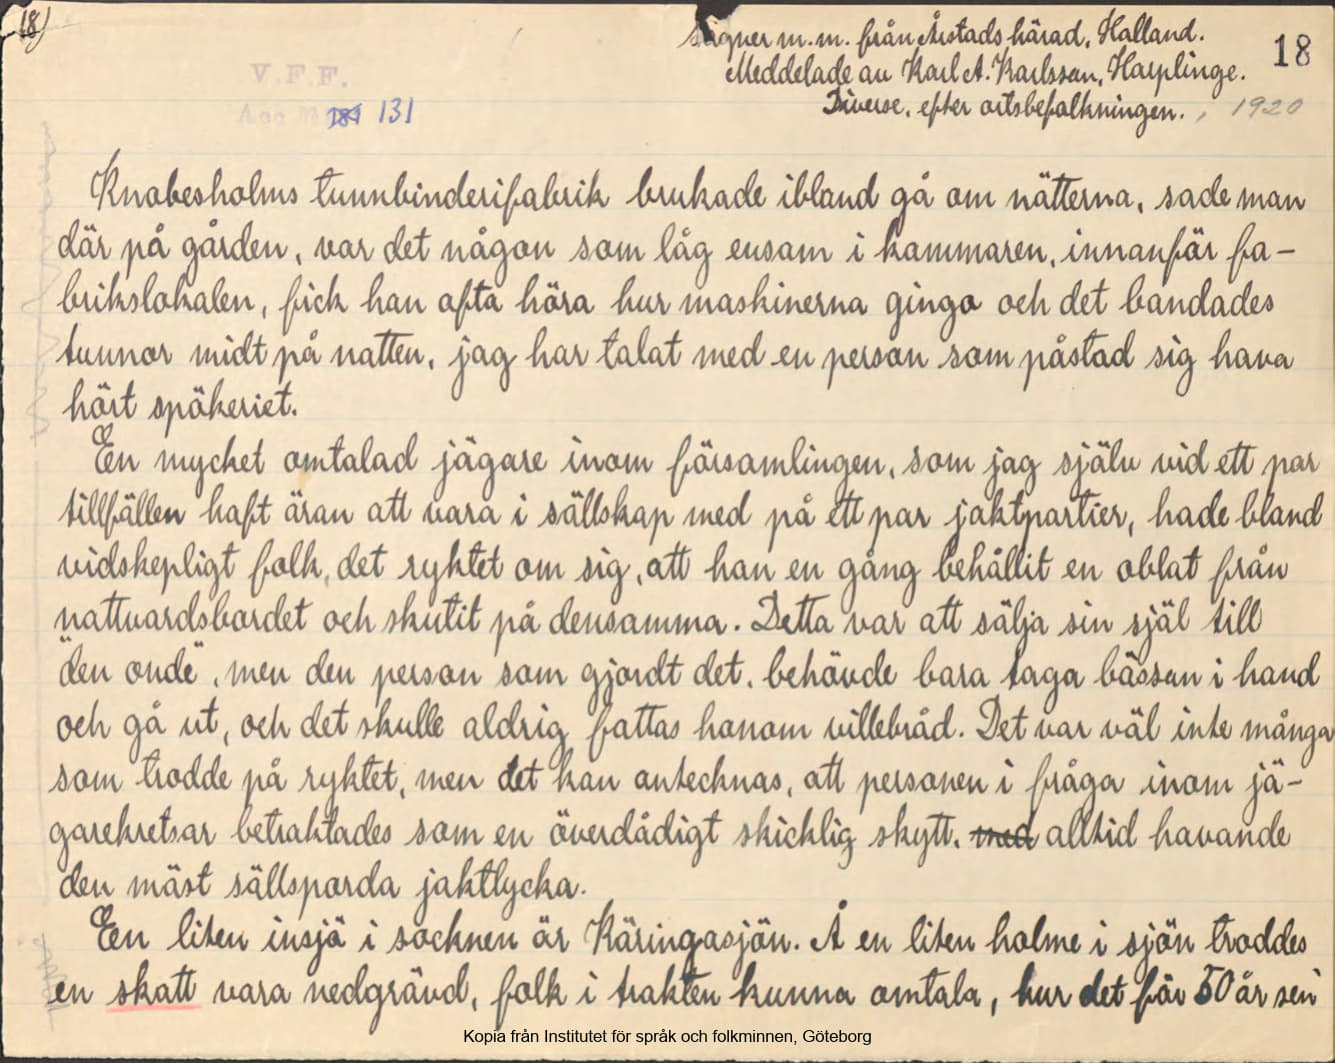 18)
Sägner m.m. från Årstads härad, Halland.
18
Meddelade av Karl A. Karlsson, Harplinge.
Diverse, efter ortsbefolkningen. , 1920
V.F.F.
Acc M 181 131
Knobesholms tunnbinderifabrik brukade ibland gå om nätterna, sade man
där på gården, var det någon som låg ensam i kammaren, innanför fa-
brikslokalen, fick han ofta höra hur maskinerna gingo och det bandades
tunnor midt på natten, jag har talat med en person som påstod sig hava
hört spökeriet.
En mycket omtalad jägare inom församlingen, som jag själv vid ett par
tillfällen haft äran att vara i sällskap med på ett par jaktpartier, hade bland
vidskepligt folk, det ryktet om sig, att han en gång behållit en oblat från
nattvardsbordet och skutit på densamma. Detta var att sälja sin själ till
"den onde", men den person som gjordt det, behövde bara taga bössan i hand
och gå ut, och det skulle aldrig fattas honom villebråd. Det var väl inte många
som trodde på ryktet, men det kan antecknas, att personen i fråga inom jä-
garekretsar betraktades som en överdådigt skicklig skytt, med alltid havande
den mäst sällsporda jaktlycka.
En liten insjö i socknen är Käringasjön. Å en liten holme i sjön troddes
en skatt vara nedgrävd, folk i trakten kunna omtala, hur det för 50 år sen
Kopia från Institutet för språk och folkminnen, Göteborg